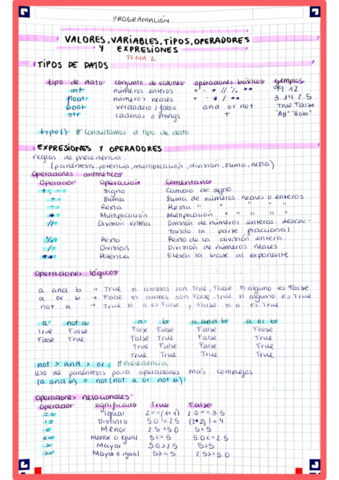 PROGRAMACIÓN
VALORES, VARIABLES, TIPOS, OPERADORES
Y EXPRESIONES
TEMA 2
TIPOS DE DATOS
tipo de dato conjunto de valores operaciones básicas ejemplos
int números enteros + - * // % **
float números reales + - * / **
bool verdadero / falso and or not True False
str cadenas o strings +
type() # Consultamos el tipo de dato
EXPRESIONES Y OPERADORES
reglas de precedencia
(paréntesis, potencia, multiplicación, división, suma, resta)
Operaciones aritméticas
Operador Operación Comentario
+, - Signo Cambio de signo
+ Suma Suma de números reales o enteros
- Resta Resta " " " "
* Multiplicación Multiplicación " " " "
// División entera División de números enteros descar-
tando la parte fraccional
% Resto Resto de la división entera
/ División División de números reales
** Potencia Elevar la base al exponente
Operaciones lógicos
a and b → True si ambos son True, False si alguno es False
a or b → False si ambos son False, True si alguno es True
not a → True si a es False y False si a es True
a not a a b a and b a or b
True False False False False False
False True False True False True
True False False True
True True True True
not > and > or # Precedencia
Uso de paréntesis para operaciones más complejas
(a and b) = not (not a or not b)
Operaciones relacionales
Operador Significado True False
== Igual
!= Distinto
< Menor 2.5 < 5.0 5 < 5
<= Menor o igual 5 <= 5 5.0 <= 2.5
> Mayor 5 > 2.5 5 > 5
>= Mayor o igual 5 >= 5 2.5 >= 5.0